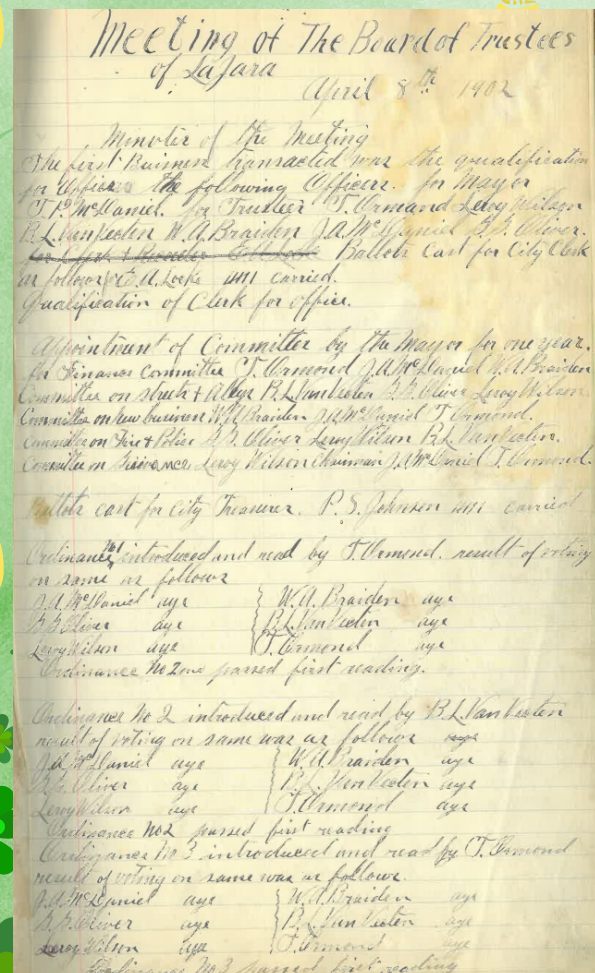 Meeting of The Board of Trustees
of LaJara
April 8th 1902
Minutes of the Meeting
The first Buisness transacted was the qualification
for Office the following Officers. for Mayor
T.P. McDaniel. for Trustees T. Ormand Leroy Wilson
B.L. VanVecten W.A. Braiden J.A. McDaniel B.B. Oliver.
Ballots Cast for City Clerk
as follows for E.U. Locke carried.
Qualification of Clerk for office.
Appointment of Committees by the Mayor for one year.
for Finance Committee T. Ormond J.A. McDaniel W.A. Braiden
Committee on streets & Alleys B.L. VanVecten B.B. Oliver Leroy Wilson.
Committee on New business W.A. Braiden J.A. McDaniel T. Ormond.
Committee on Fire & Police B.B. Oliver Leroy Wilson B.L. VanVecten.
Committee on Grievance, Leroy Wilson Chairman J.A. McDaniel T. Ormond.
Ballots cast for City Treasurer. P.S. Johnson carried
Ordinance No1 introduced and read by T. Ormond. result of voting
on same as follows
J.A. McDaniel aye W.A. Braiden aye
B.B. Oliver aye B.L. VanVecten aye
Leroy Wilson aye T. Ormond aye
Ordinance No one passed first reading.
Ordinance No 2 introduced and read by B.L. VanVecten
result of voting on same was as follows aye
J.A. McDaniel aye W.A. Braiden aye
B.B. Oliver aye B.L. VanVecten aye
Leroy Wilson aye T. Ormond aye
Ordinance No2 passed first reading
Ordinance No 3 introduced and read by T. Ormond
result of voting on same was as follows.
J.A. McDaniel aye W.A. Braiden aye
B.B. Oliver aye B.L. VanVecten aye
Leroy Wilson aye T. Ormond aye
Ordinance No.3 passed first reading